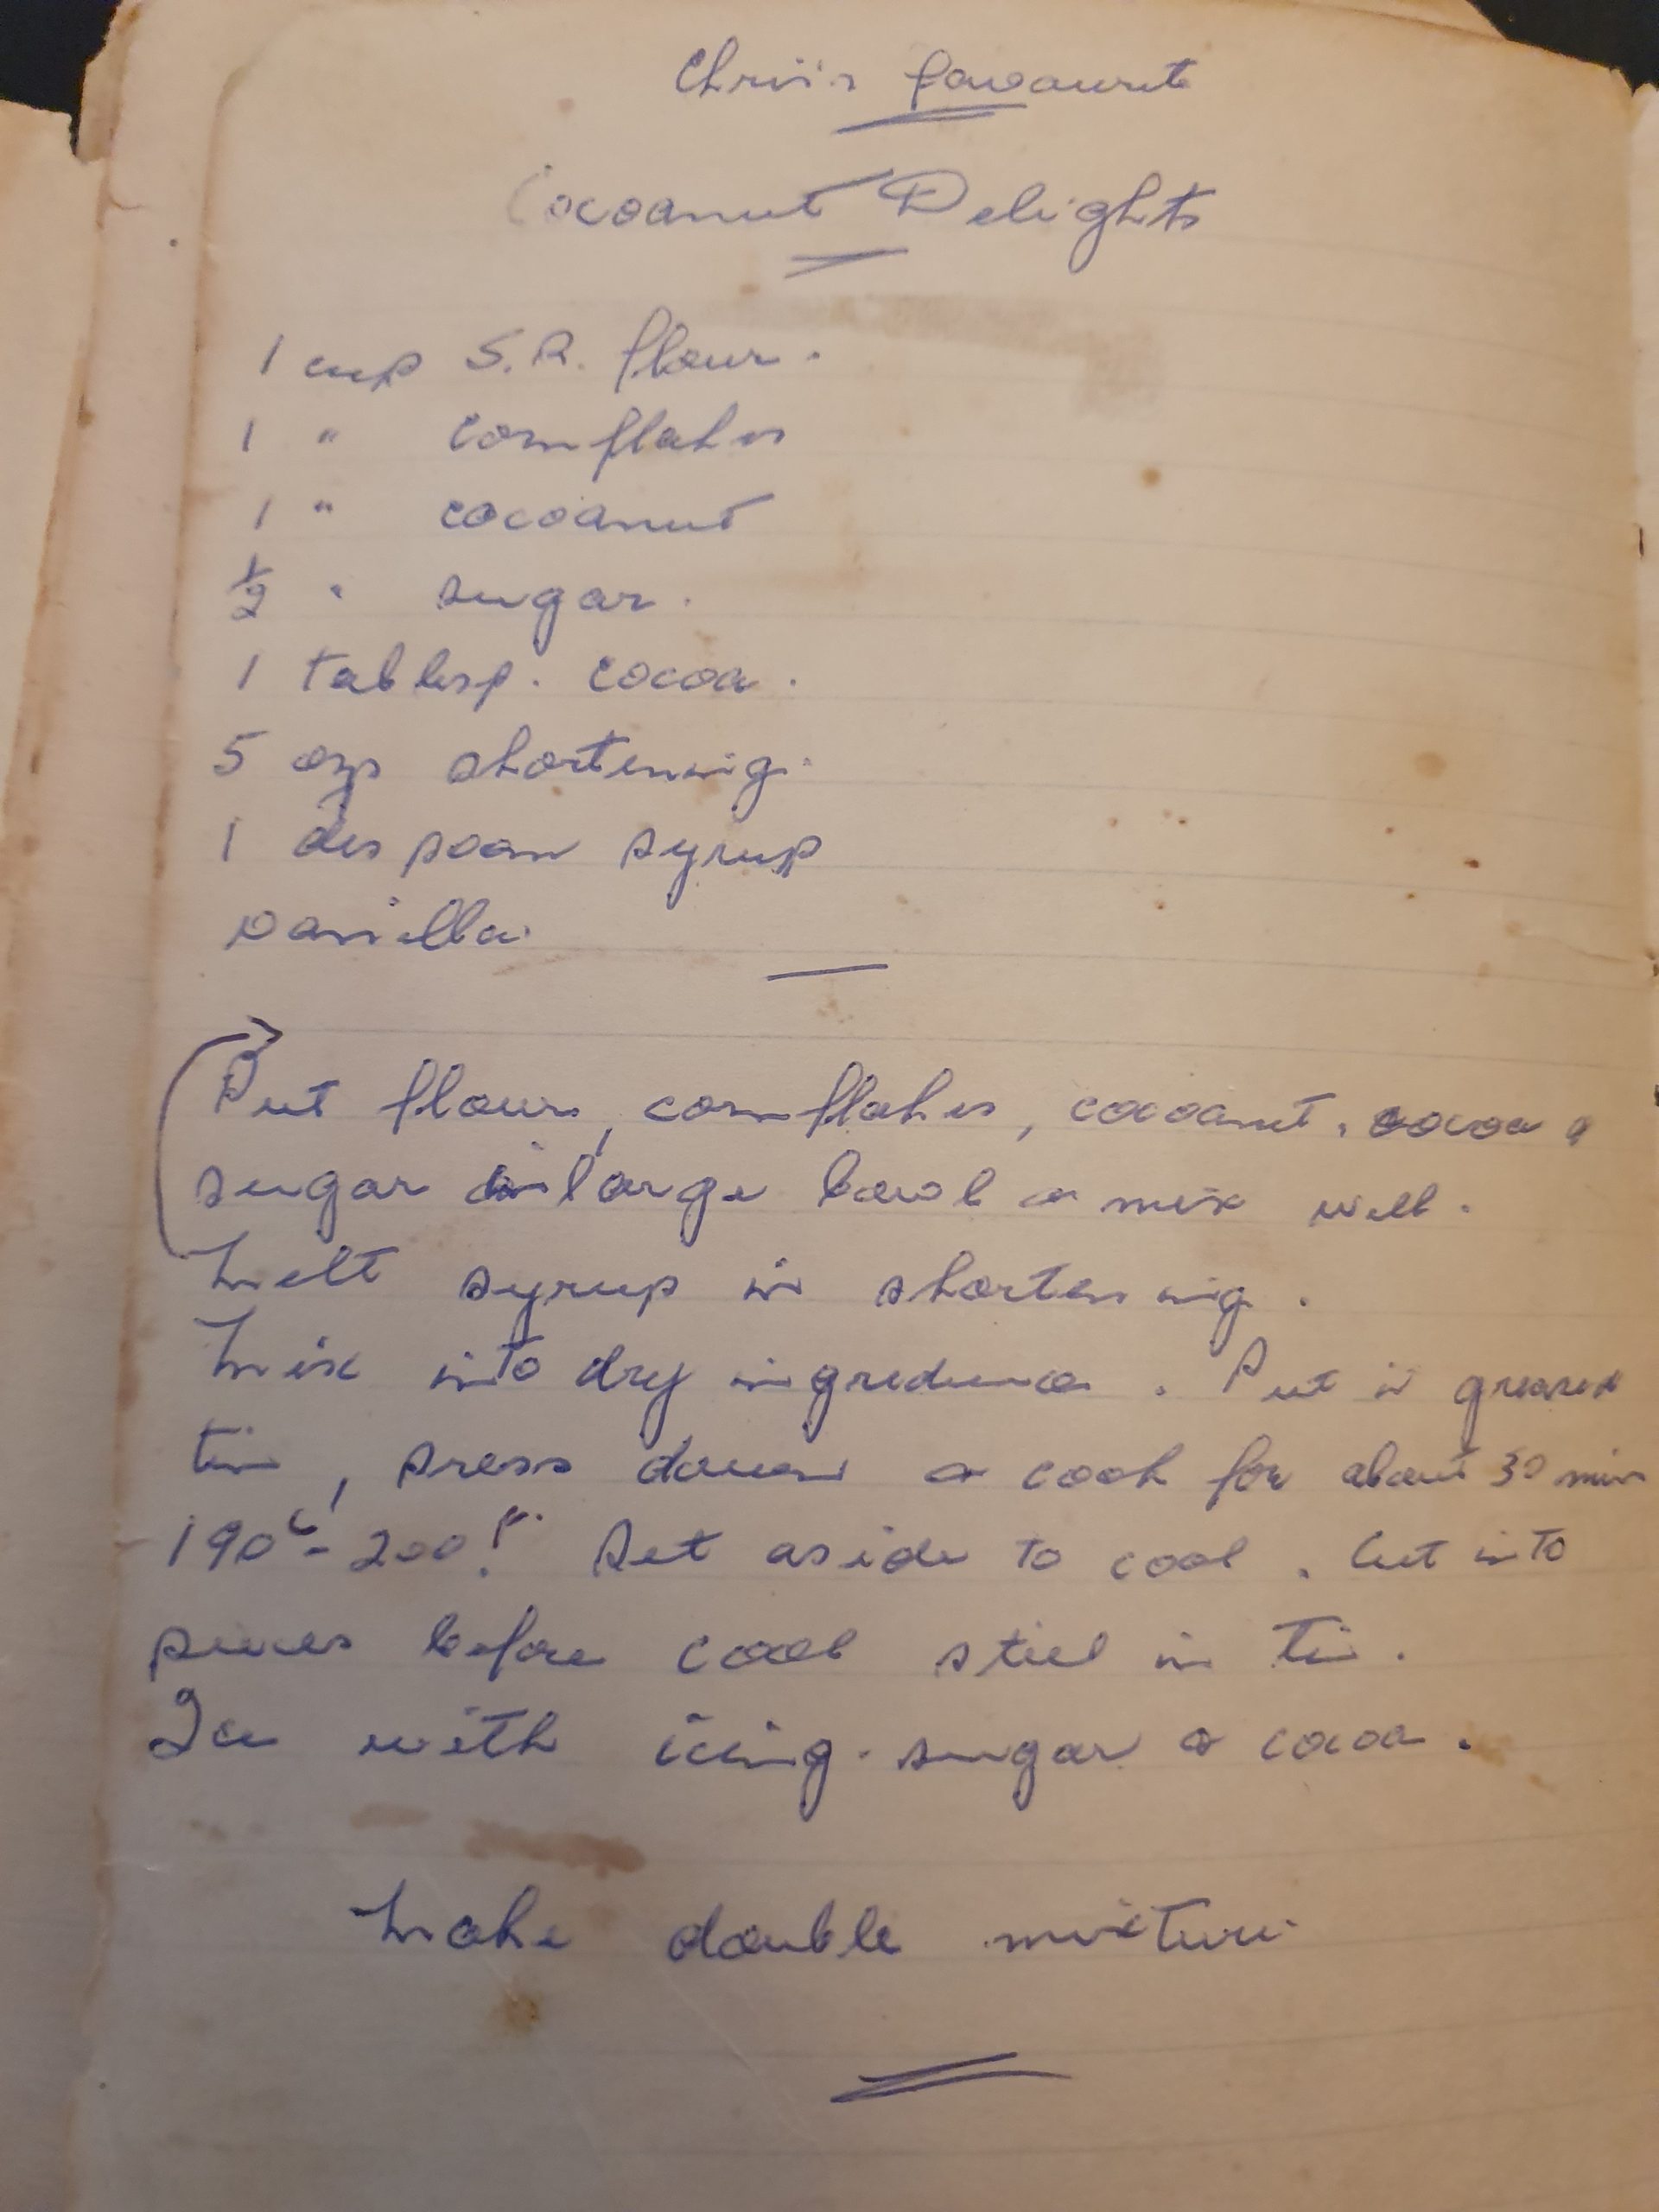 Chris's favourite
Cocoanut Delights
1 cup S.R. flour.
1 " cornflakes
1 " cocoanut
½ " sugar.
1 tablesp. cocoa.
5 ozs shortening.
1 des spoon syrup
vanilla.
Put flour, cornflakes, cocoanut, cocoa &
sugar in large bowl & mix well.
Melt syrup in shortening.
Mix into dry . Put in greased
tin, press down & cook for about 30 mins
190° - 200°. Set aside to cool. Cut into
pieces before cool still in tin.
Ice with icing-sugar & cocoa.
Make double mixture